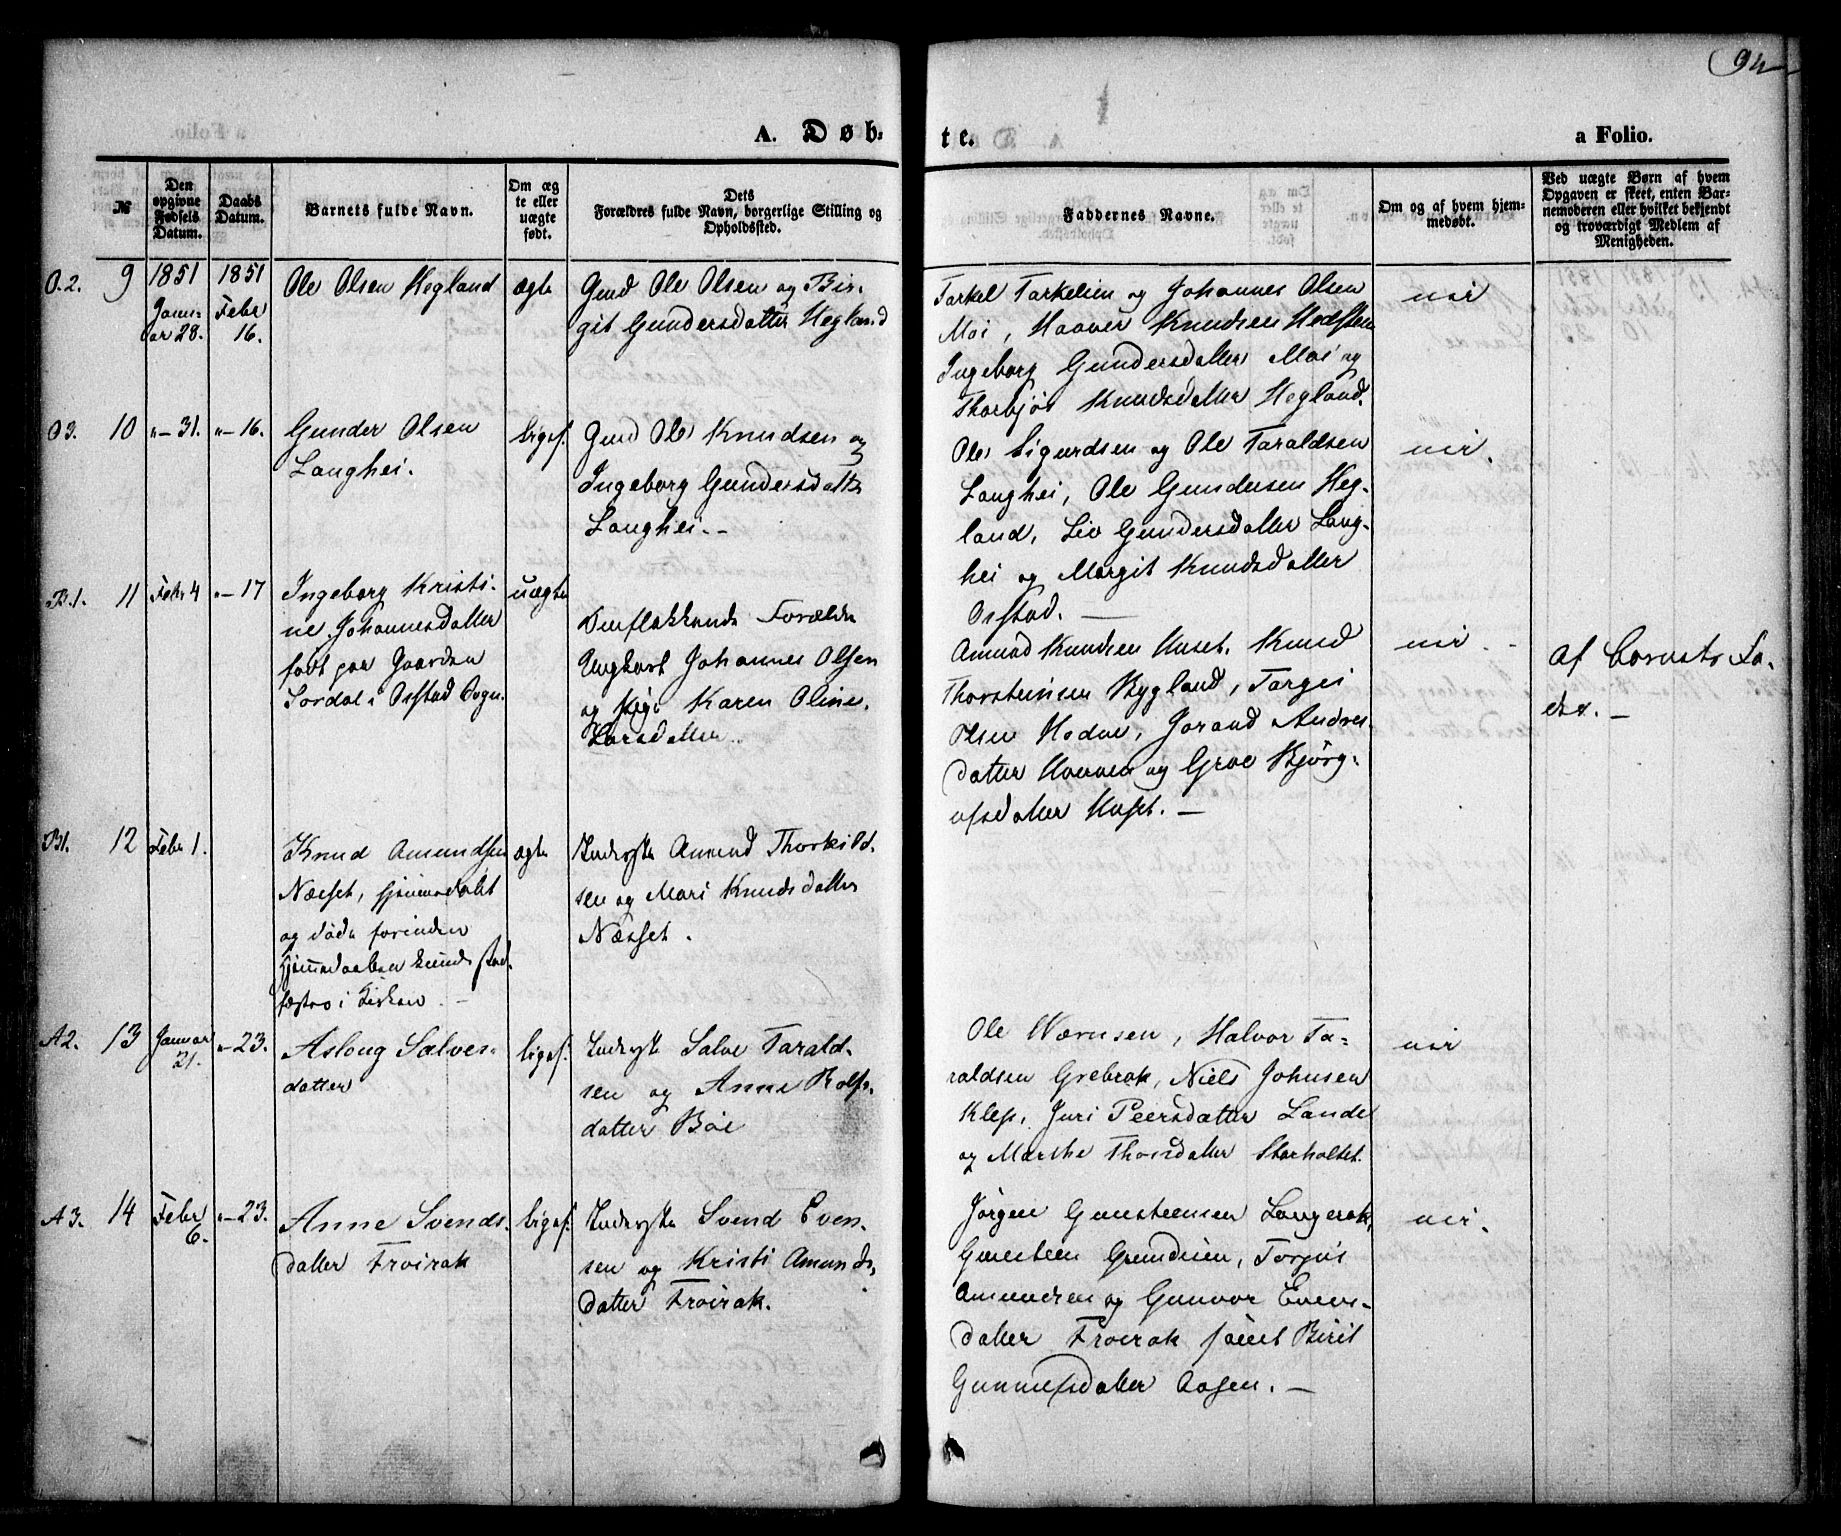 94
A. Døb-
te.
a Folio.
№
Den opgivne Fødsels Datum.
Daabs Datum.
Barnets fulde Navn.
Om ægte eller uægte født.
Dets Forældres fulde Navn, borgerlige Stilling og Opholdssted.
Faddernes Navne.
Om og af hvem hjemmedøbt.
Ved uægte Børn af hvem Opgaven er skeet, enten Barnemoderen eller hvilket bekjendt og troværdigt Medlem af Menigheden.
O.2.
9
1851
Janu-
ar 28.
1851
Febr
16.
Ole Olsen Hegland
ægte
Gmd Ole Olsen og Bir-
git Gundersdatter Hegland
Tarkel Tarkelsen og Johannes Olsen
Moi, Haavor Knudsen
Ingeborg Gundersdatter Moi og
Thorbjør Knudsdatter Hegland.
nei
O3.
10
"-31.
"-16.
Gunder Olsen
Langhei.
liges.
Gmd Ole Knudsen og
Ingeborg Gundersdatter
Langhei.-
Ole Sigurdsen og Ole Taraldsen
Langhei, Ole Gundersen Heg-
land, Liv Gundersdatter Lang-
hei og Margit Knudsdatter
Osstad.
nei.
B.1.
11
Febr 4
"-17
Ingeborg Kristi-
ne Johannesdatter
født paa Gaarden
Sordal i Osstad Sogn.
uægte
Omflakkende Forældre
Ungkarl Johannes Olsen
og Pige Karen Oline
Larsdatter.
Amund Knudsen Uuset, Knud
Thorsteinsen Bygland, Targei
Olsen Hodne, Jorand Andres-
datter og Groe Bjørg-
ufsdatter Uuset.-
nei.
af Barnets Fa-
der.-
B1.
12
Febr 1.
Knud Amundsen
Næsset, hjemmedøbt
og døde forinden
Hjemmedaaben kunde stad-
fæstes i Kirken.
ægte
Inderste Amund Thorkild-
sen og Mari Knudsdatter
Næsset.
A2.
13
Januar
21.
"-23.
Aslaug Salves-
datter
ligef.
Inderste Salve Tarald-
sen og Anne Rolfs-
datter Bøe
Ole Wærnsen, Halvor Ta-
raldsen Grebrok, Niels Johnsen
Klep, Juri Peersdatter Lande
og Marthe Thorsdatter Storholtet.
nei
A3.
14
Febr
6.
"-23.
Anne Svends-
datter Frøirak
ligef.
Inderste Svend Even-
sen og Kristi Amunds-
datter Frøirak.
Jørgen Gunsteensen Langerak,
Gunsteen Gundersen, Torjus
Amundsen og Gunvor Evens-
datter Frøirak samt Birit
Gunnufsdatter Aasen.-
nei.